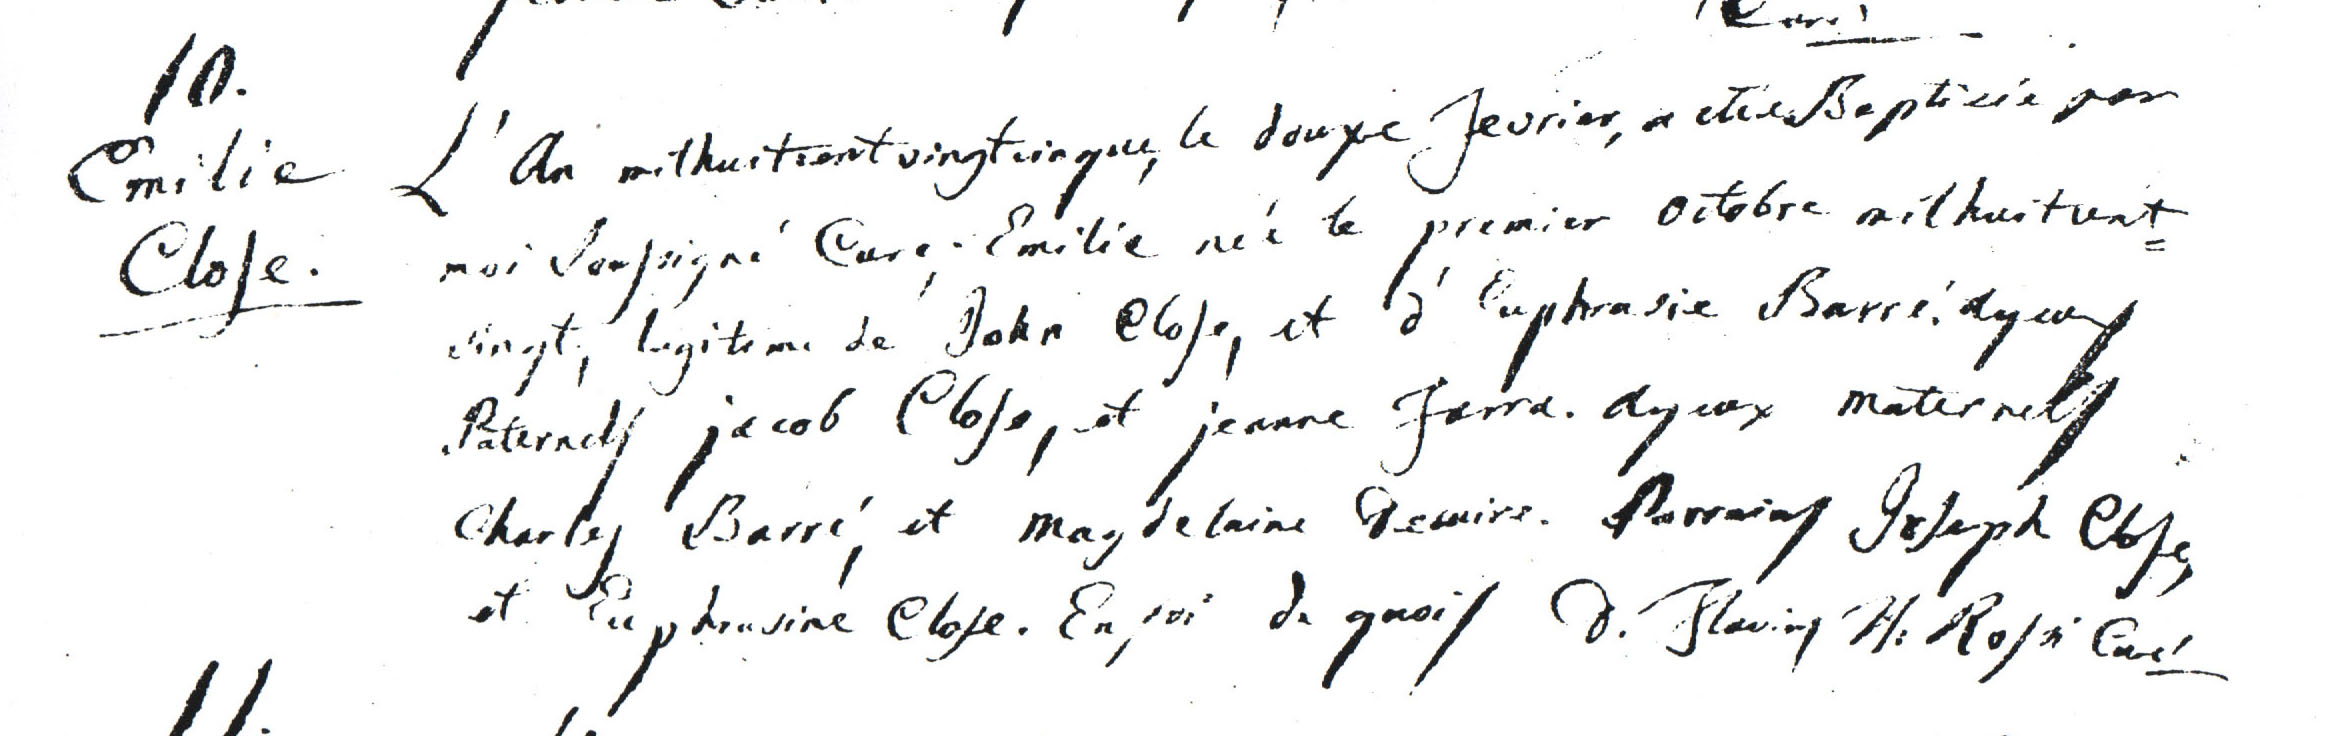 Curé
10.
Emilie
Close.
L'An milhuitcent vingtcinque, le douxe Fevrier, a etée Baptisée par
moi Sousigné Curé, Emilie née le premier Octobre milhuitcent=
vingt, legitime de John Close, et d'Euphrasie Barré. Ayeux
Paternels jacob Close, et jeanne Farra. Ayeux maternels
Charles Barré, et magdelaine. Parrains Joseph Close,
et Euphrasine Close. En foi de quois D. Flavius H. Rossi Curé
11.